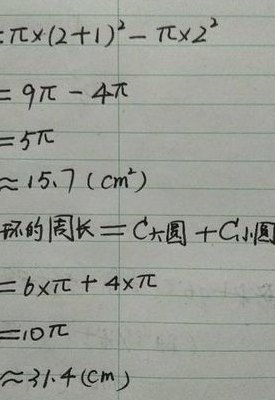 :π×(2+1)²-π×2²
=9π-4π
=5π
≈15.7(cm²)
环的周长=C大圆+C小圆
=6×π+4×π
=10π
≈31.4(cm)